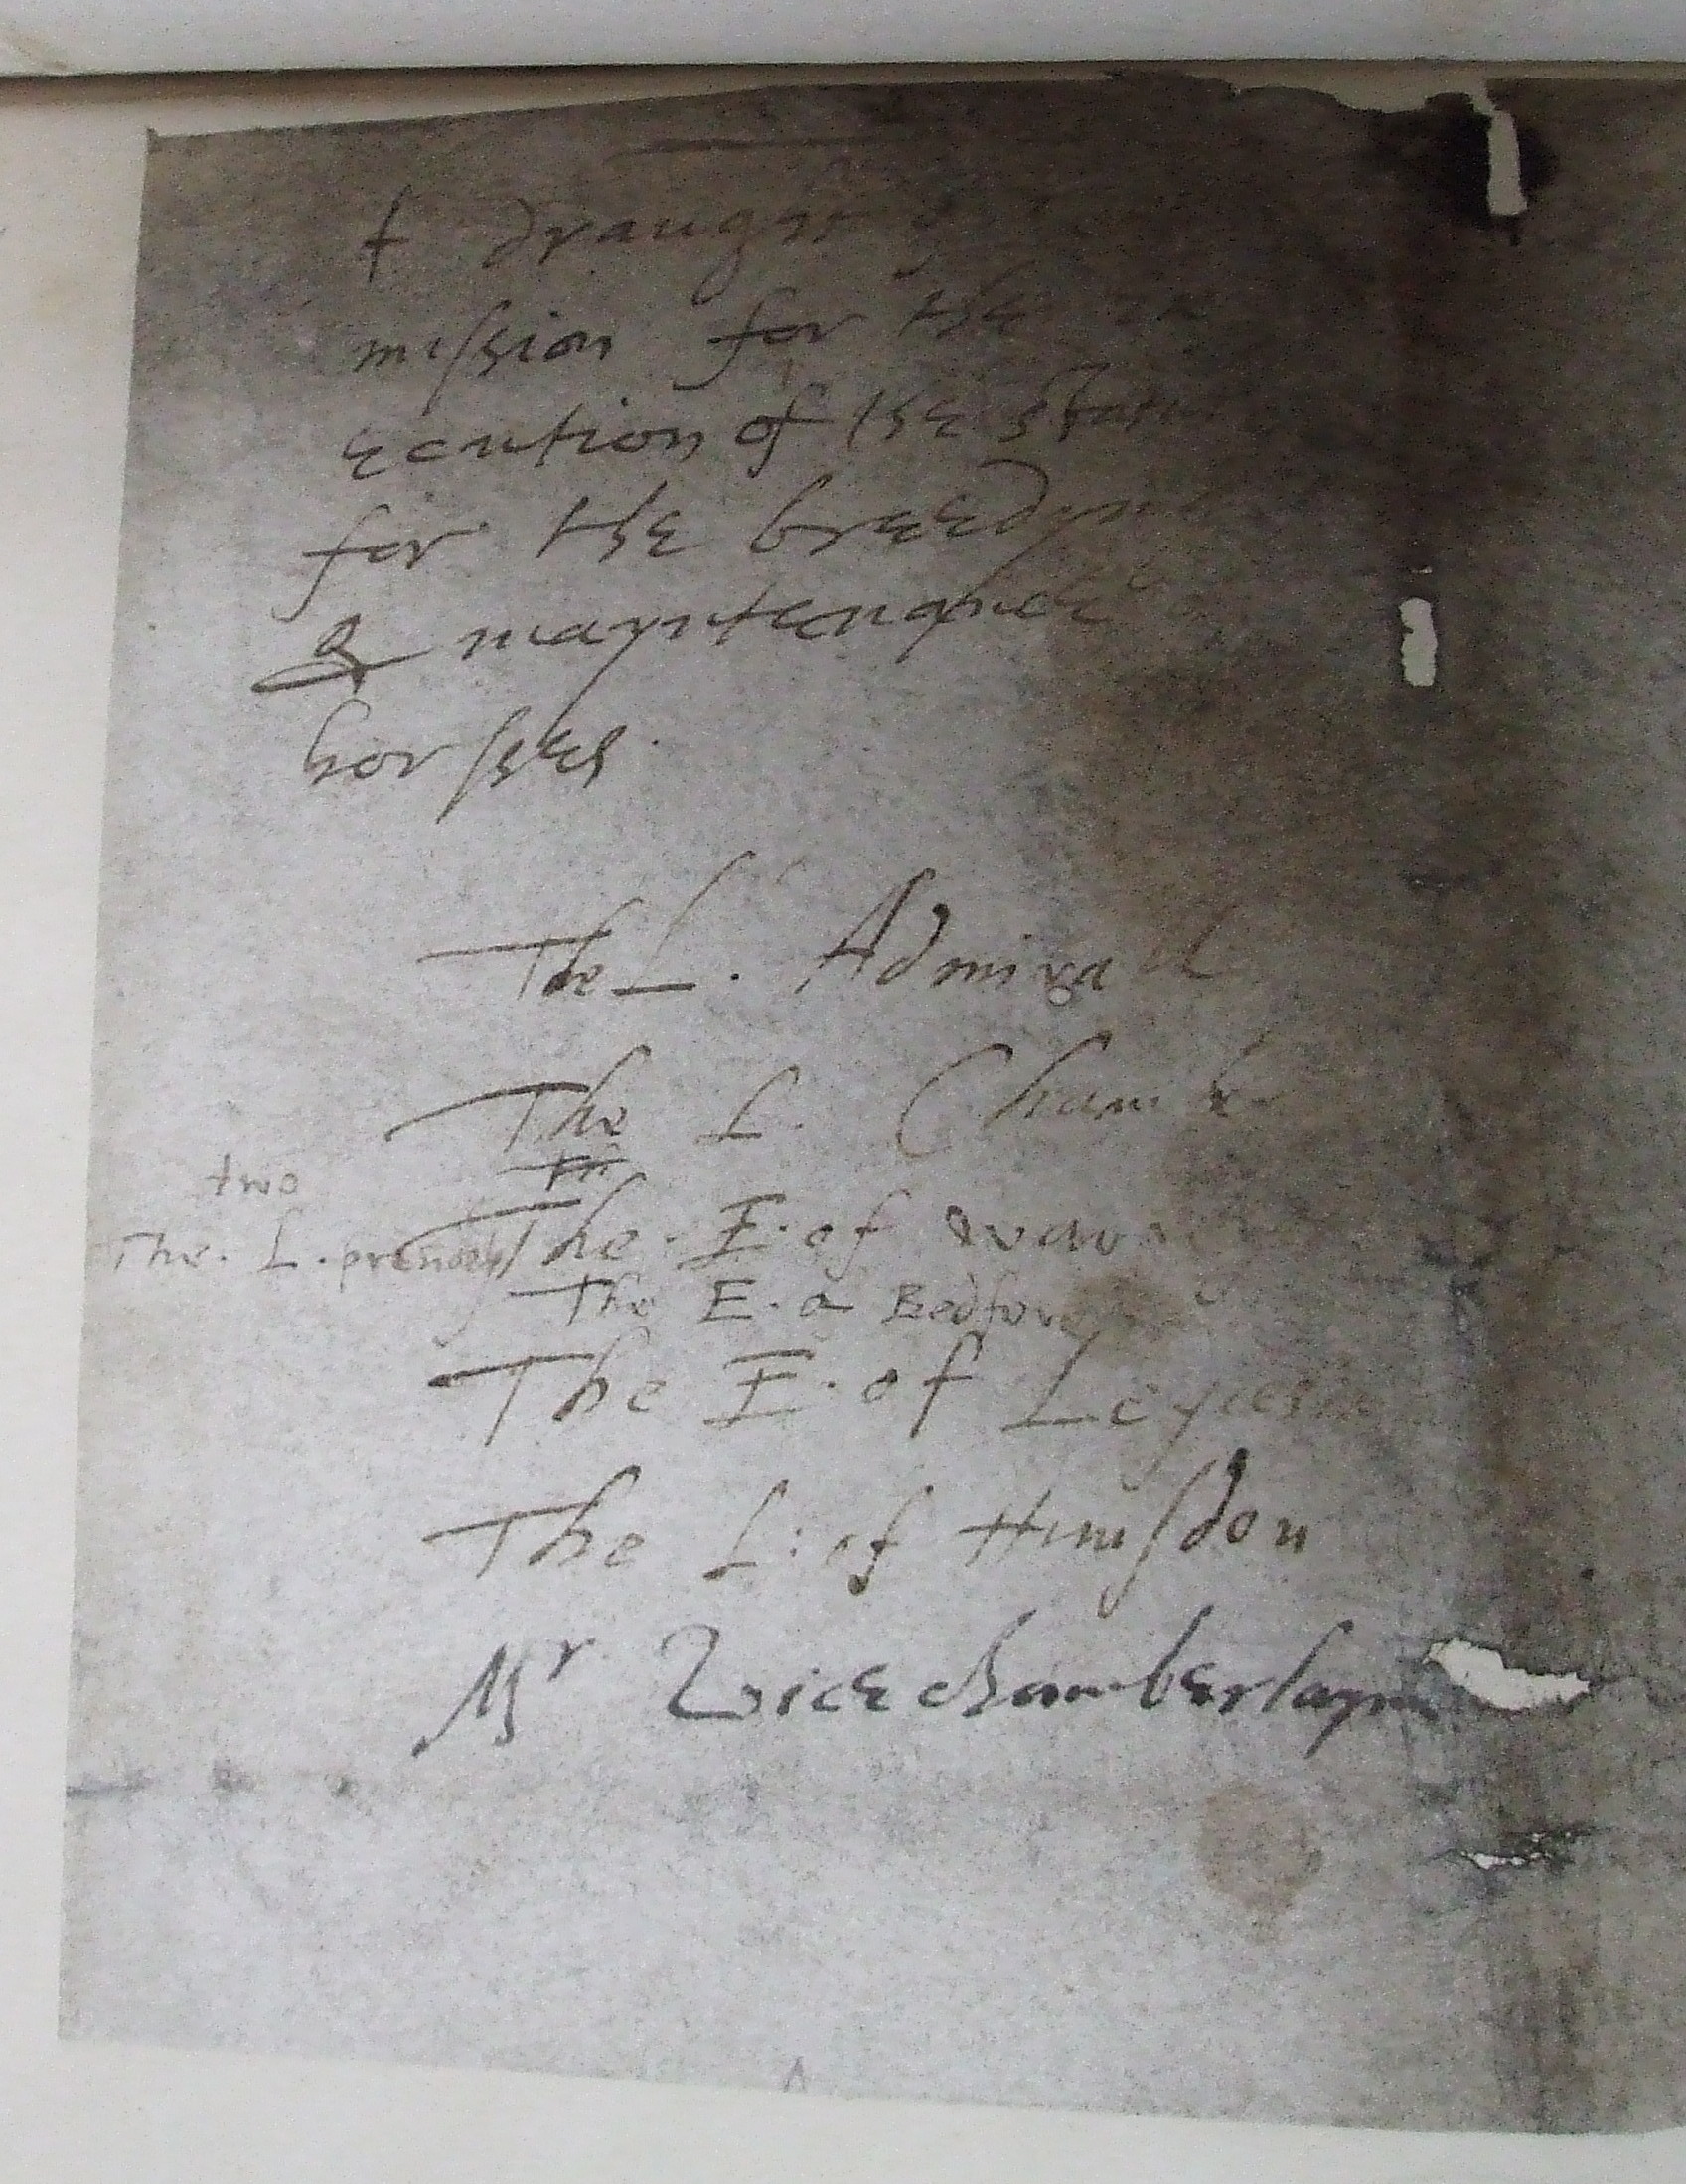 A draught of
mission for the ex
ecution of the Statu
for the breedyng
& mayntenance
horsses.
The L. Admirall
The L. Chamb
two
The. L. presidents
The. E. of warw
The E. of Bedford
The E. of Leycester
The L: of Hunsdon
Mr Vicechamberlayn